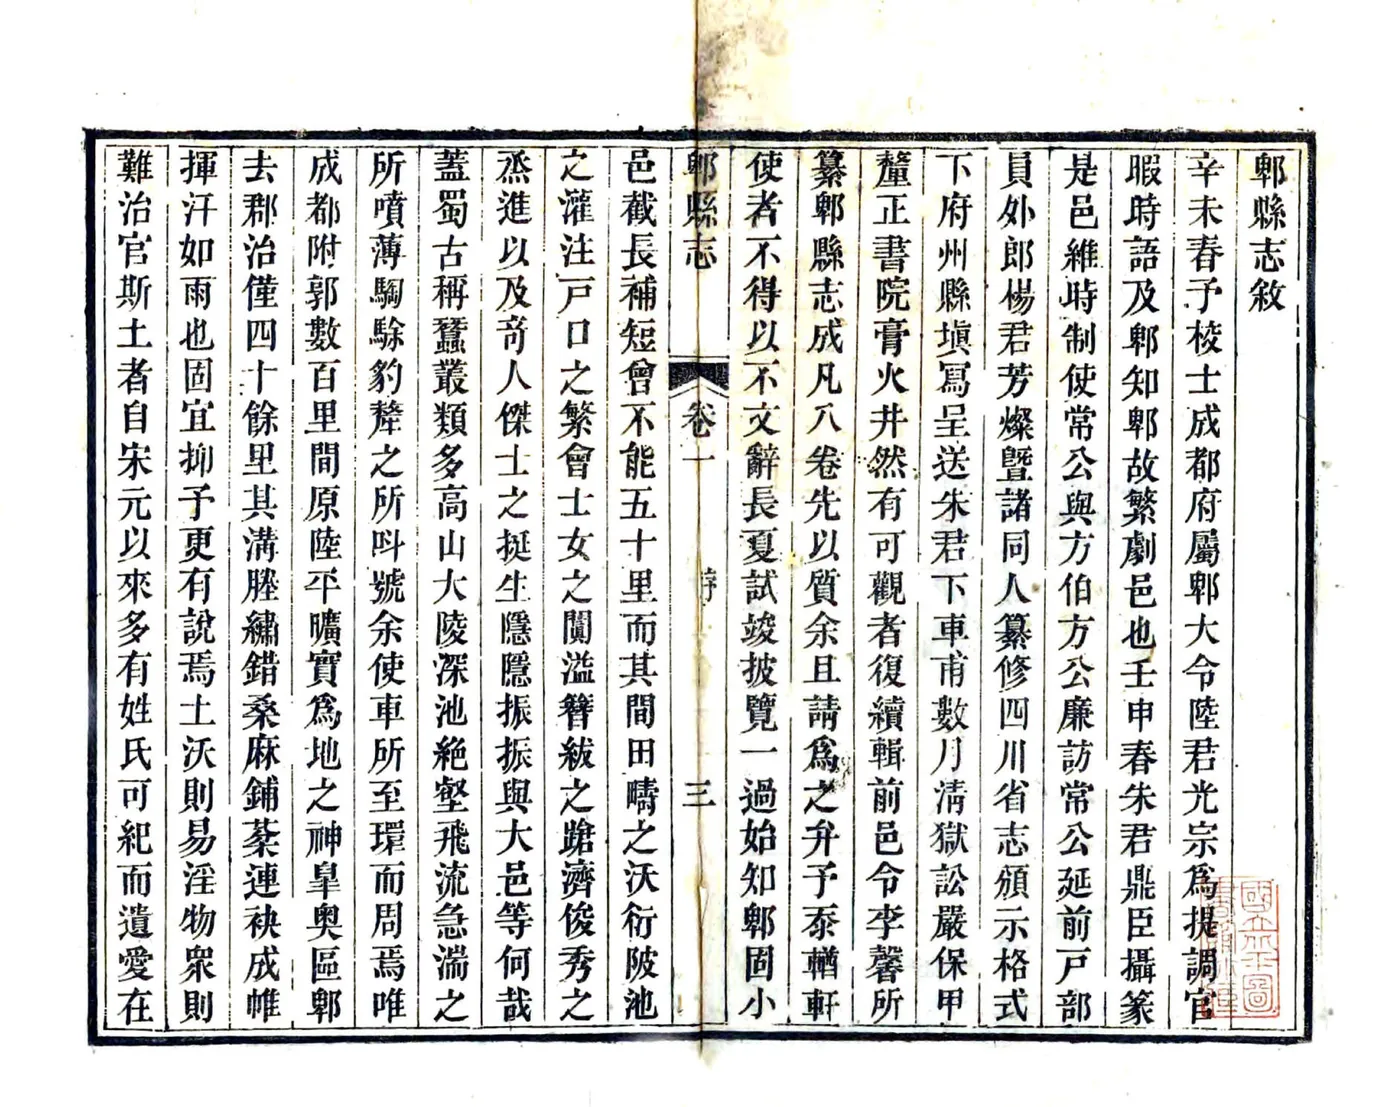 郫縣志敘
辛未春予校士成都府屬郫大令陸君光宗爲提調官
暇時語及郫知郫故繁劇邑也壬申春朱君鼎臣攝篆
是邑維時制使常公與方伯方公廉訪常公延前戶部
員外郎楊君芳燦暨諸同人纂修四川省志頒示格式
下府州縣塡寫呈送朱君下車甫數月淸獄訟嚴保甲
釐正書院膏火井然有可觀者復續輯前邑令李馨所
纂郫縣志成凡八卷先以質余且請爲之弁予忝輶軒
使者不得以不文辭長夏試竣披覽一過始知郫固小
郫縣志 卷一 序 三
邑截長補短曾不能五十里而其間田疇之沃衍陂池
之灌注戸口之繁會士女之闐溢簪紱之蹌濟俊秀之
烝進以及奇人傑士之挺生隱隱振振與大邑等何哉
蓋蜀古稱蠶叢類多高山大陵深池絶壑飛流急湍之
所噴薄騊駼豹犛之所呌號余使車所至環而周焉唯
成都附郭數百里間原陸平曠實爲地之神臯奧區郫
去郡治僅四十餘里其溝塍繡錯桑麻鋪棻連袂成帷
揮汗如雨也固宜抑予更有說焉土沃則易淫物衆則
難治官斯土者自宋元以來多有姓氏可紀而遺愛在